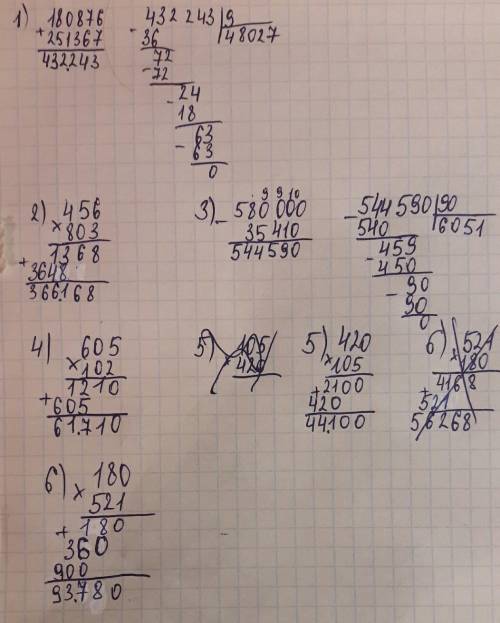 1) 180876
+ 251367
432.243
- 432243 | 9
36 | 48027
72
- 72
- 24
18
63
- 63
0
2) 456
× 803
1368
+ 3648
366.168
3) 9 9 10
- 580000
35410
544590
- 544590 | 90
540 | 6051
- 459
450
- 90
90
0
4) 605
× 102
1210
+ 605
61.710
5) 105
× 420
5) 420
× 105
+ 2100
420
44.100
6) 521
× 180
4168
+ 521
56268
6) 180
× 521
+ 180
360
900
93.780